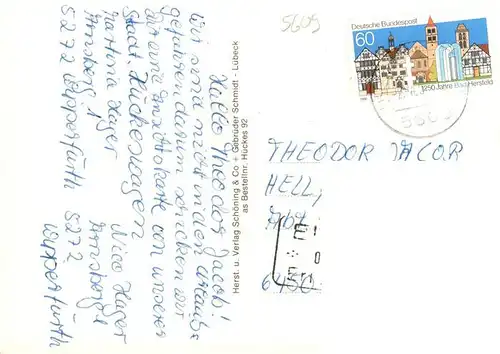 5609
Deutsche Bundespost
60
1250 Jahre Bad Hersfeld
Hallo Theodor Jacobi!
Wir sind nicht in den Urlaub
gefahren darum schicken wir
dir eine Ansichtskarte von unserer
Stadt Hückeswagen
Martina Hager
Arnsberg 1
5272 Wipperfürth
Nico Hager
Arnsberg 1
5272
Wipperfürth
Herst. u. Verlag Schöning & Co + Gebrüder Schmidt - Lübeck
as Bestellnr. Hückes 92
THEODOR JACOB
HELL,
6450